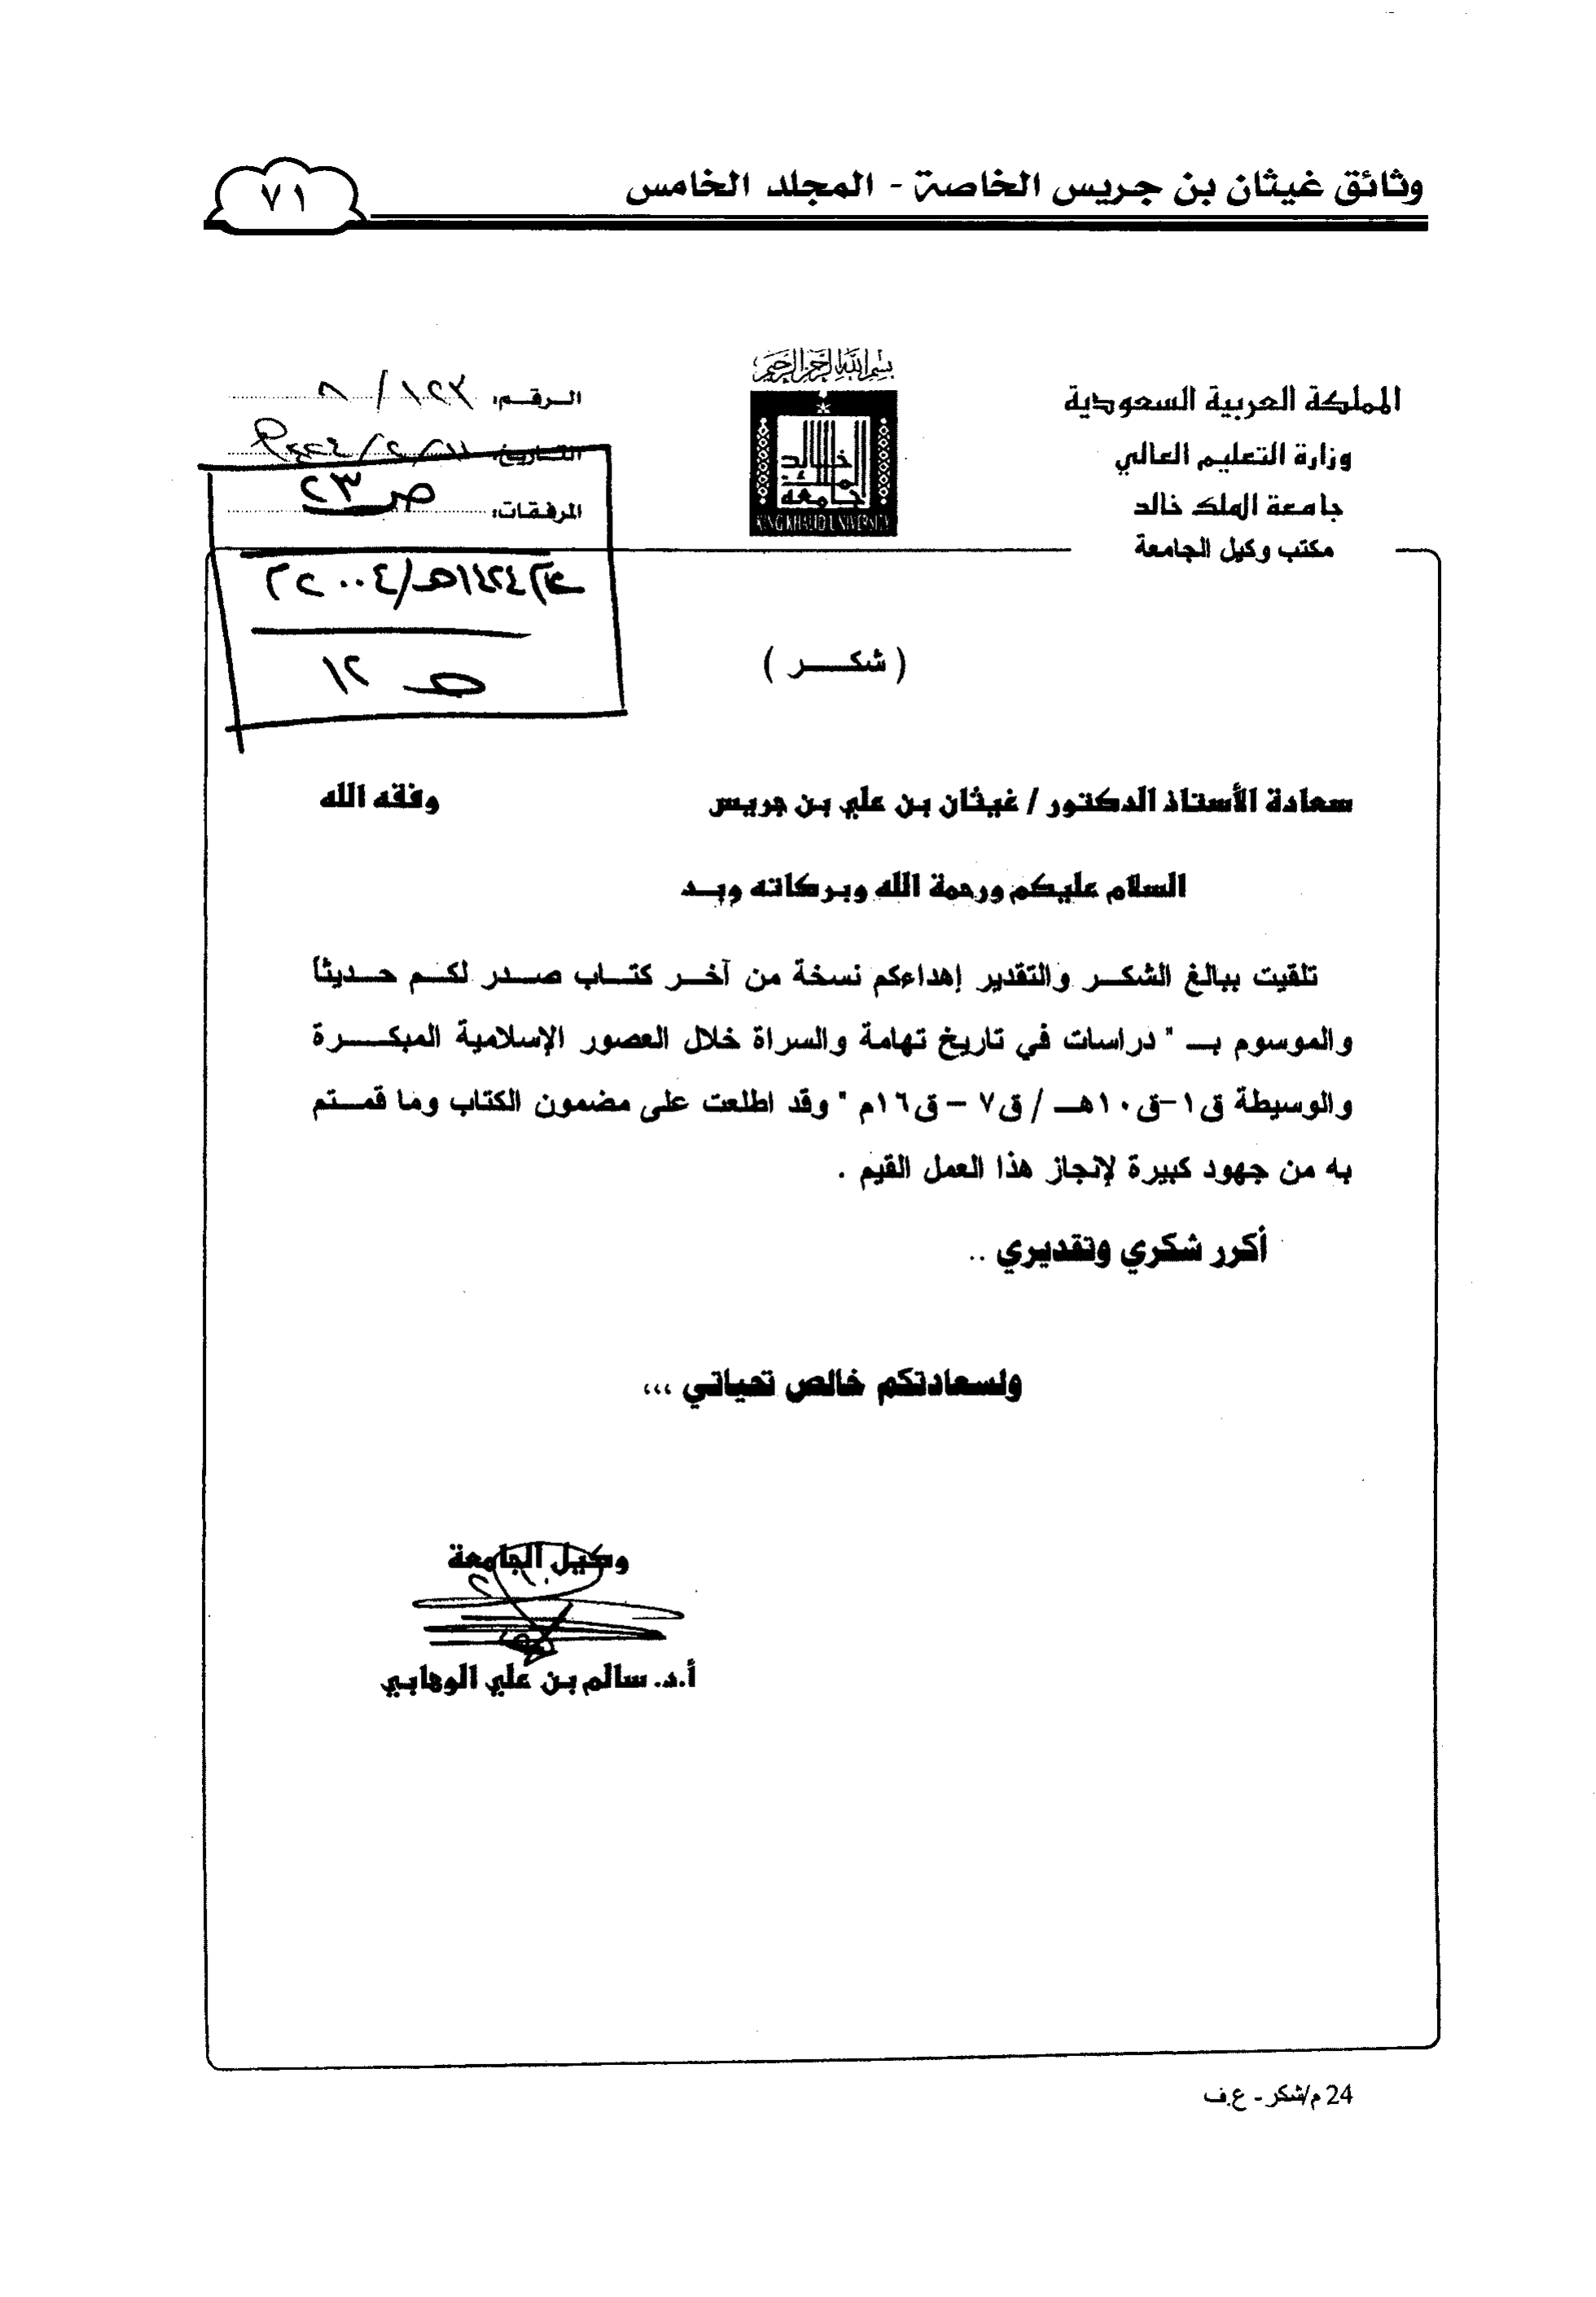 وثائق غيثان بن جريس الخاصة - المجلد الخامس
٧١
بسم الله الرحمن الرحيم
المملكة العربية السعودية
وزارة التعليم العالي
جامعة الملك خالد
مكتب وكيل الجامعة
جامعة الملك خالد
KING KHALID UNIVERSITY
الرقم:
التاريخ:
المرفقات:
ص ٢٣
١٤٢٤هـ/٢٠٠٤م
ص ١٢
( شكـــر )
سعادة الأستاذ الدكتور / غيثان بن علي بن جريس وفقه الله
السلام عليكم ورحمة الله وبركاته وبـد
تلقيت ببالغ الشكـــر والتقدير إهداءكم نسخة من آخــر كتــاب صــدر لكــم حــديثاً
والموسوم بـــ " دراسات في تاريخ تهامة والسراة خلال العصور الإسلامية المبكـــرة
والوسيطة ق١-ق١٠هــ / ق٧ – ق١٦م " وقد اطلعت على مضمون الكتاب وما قمــتم
به من جهود كبيرة لإنجاز هذا العمل القيم .
أكرر شكري وتقديري ..
ولسعادتكم خالص تحياتي ،،،
وكيل الجامعة
أ.د. سالم بن علي الوهابي
24 م/شكر - ع.ف